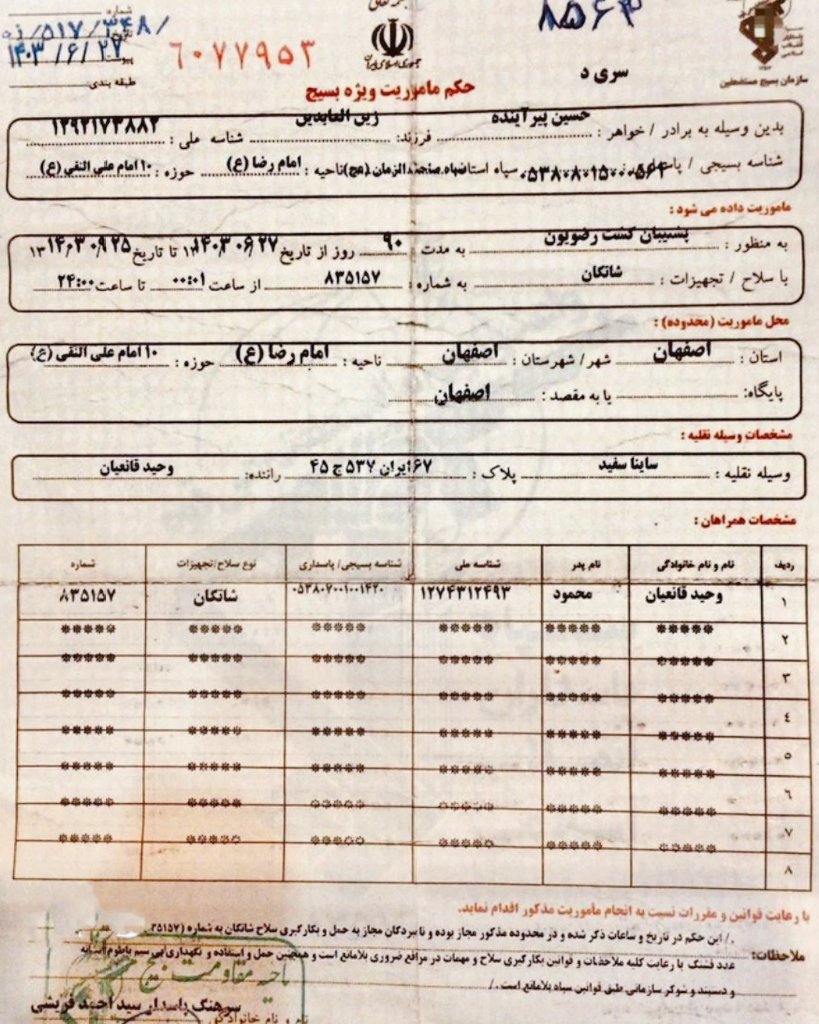 شماره
۵۱۷/۳۴۸/
تاریخ ۱۴۰۳/۶/۲۷
پیوست
طبقه بندی:
۶۰۷۷۹۵۳
جمهوری اسلامی ایران
۸۵۶۴
سری د
سازمان بسیج مستضعفین
حکم ماموریت ویژه بسیج
بدین وسیله به برادر / خواهر : حسین پیرآینده فرزند: زین العابدین شناسه ملی : ۱۲۹۲۱۷۳۸۸۲
شناسه بسیجی / سپاه استان صاحب الزمان (عج) ناحیه : امام رضا (ع) حوزه : ۱۰ امام علی النقی (ع)
ماموریت داده می شود :
به منظور : پشتیبان گشت رضویون به مدت ۹۰ روز از تاریخ ۱۴۰۳/۰۶/۲۷ تا تاریخ ۱۴۰۳/۰۹/۲۵
با سلاح / تجهیزات : شاتگان به شماره : ۸۳۵۱۵۷ از ساعت ۰۰:۰۱ تا ساعت ۲۴:۰۰
محل ماموریت (محدوده) :
استان : اصفهان شهر/ شهرستان : اصفهان ناحیه : امام رضا (ع) حوزه : ۱۰ امام علی النقی (ع)
پایگاه: یا به مقصد : اصفهان
مشخصات وسیله نقلیه :
وسیله نقلیه : ساینا سفید پلاک : ۶۷ ایران ۵۳۷ ج ۴۵ راننده: وحید قانعیان
مشخصات همراهان :
ردیف نام و نام خانوادگی نام پدر شناسه ملی شناسه بسیجی/ پاسداری نوع سلاح/تجهیزات شماره
۱ وحید قانعیان محمود ۱۲۷۴۳۱۲۴۹۳ ۰۵۳۸۰۷۰۰۱۰۰۱۴۲۰ شاتگان ۸۳۵۱۵۷
۲ ***** ***** ***** ***** ***** *****
۳ ***** ***** ***** ***** ***** *****
۴ ***** ***** ***** ***** ***** *****
۵ ***** ***** ***** ***** ***** *****
۶ ***** ***** ***** ***** ***** *****
۷ ***** ***** ***** ***** ***** *****
۸ ***** ***** ***** ***** ***** *****
با رعایت قوانین و مقررات نسبت به انجام مأموریت مذکور اقدام نماید.
ملاحظات: ./ این حکم در تاریخ و ساعات ذکر شده و در محدوده مذکور مجاز بوده و نامبردگان مجاز به حمل و بکارگیری سلاح شاتگان به شماره
عدد فشنگ با رعایت کلیه ملاحظات و قوانین بکارگیری سلاح و مهمات در مواقع ضروری بلامانع است و همچنین حمل و استفاده و نگهداری بی سیم باطوم
و دستبند و شوکر سازمانی طبق قوانین سپاه بلامانع است ./
ناحیه مقاومت بسیج
سرهنگ پاسدار سید احمد قریشی
نام و نام خانوادگی